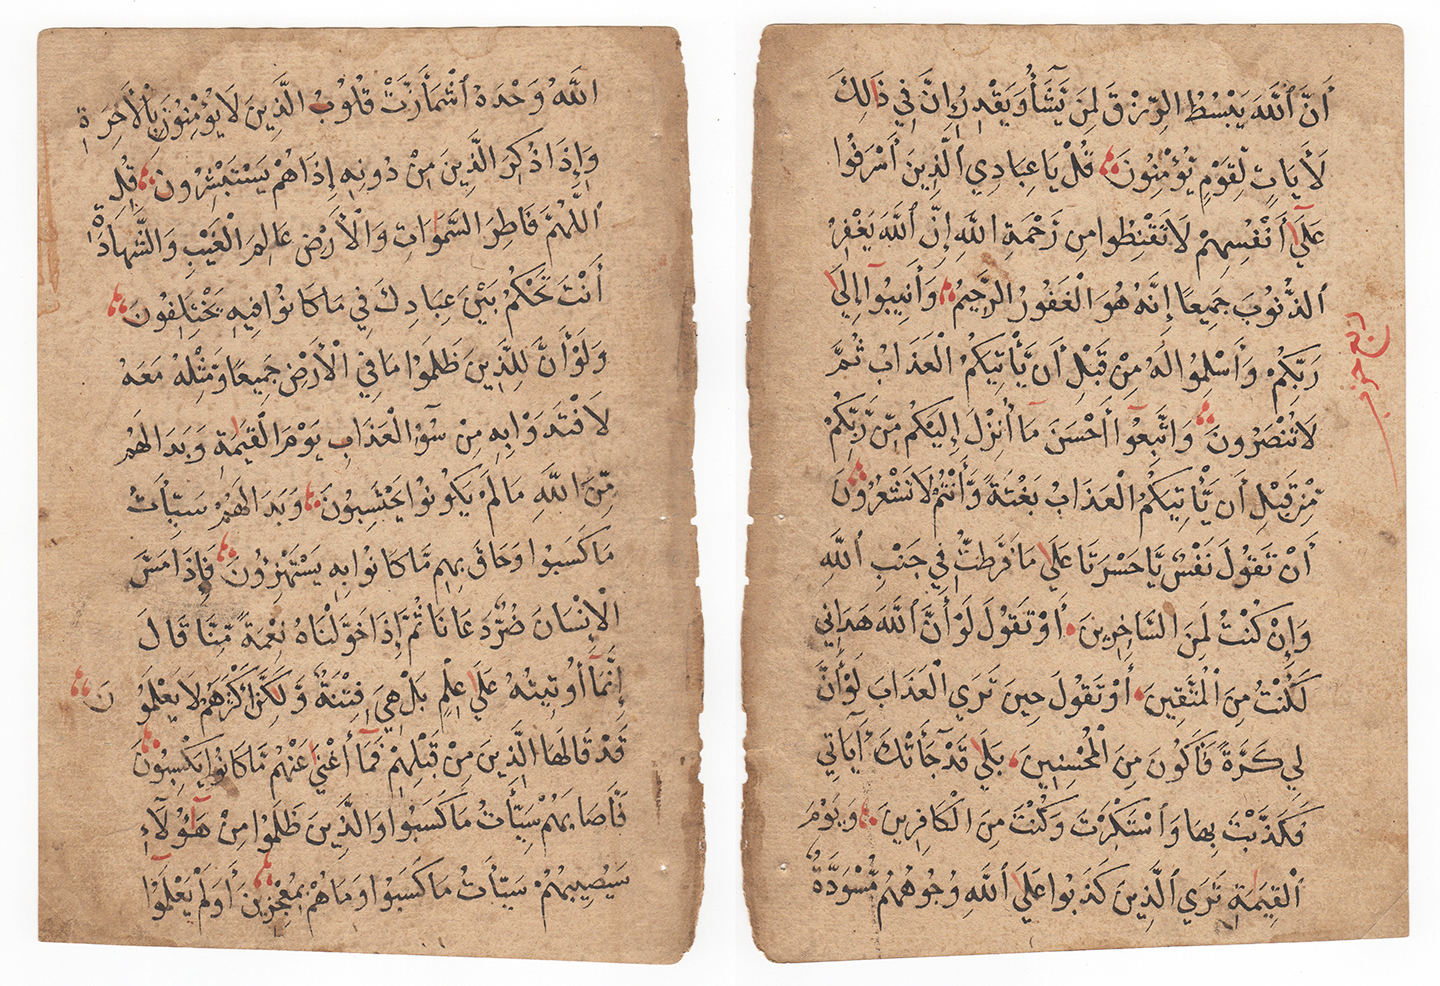 اللَّهُ وَحْدَهُ ٱشْمَأَزَّتْ قُلُوْبُ الَّذِينَ لَا يُؤْمِنُوْنَ بِالْأَخِرَةِ
وَإِذَا ذُكِرَ الَّذِينَ مِنْ دُونِهِ إِذَا هُمْ يَسْتَبْشِرُونَ قُلِ
اللَّهُمَّ فَاطِرَ السَّمٰوَاتِ وَالْأَرْضِ عَالِمَ الْغَيْبِ وَالشَّهَادَةِ
أَنْتَ تَحْكُمُ بَيْنَ عِبَادِكَ فِي مَا كَانُوا فِيهِ يَخْتَلِفُونَ
وَلَوْ أَنَّ لِلَّذِينَ ظَلَمُوْا مَا فِي الْأَرْضِ جَمِيعًا وَّمِثْلَهُ مَعَهُ
لَافْتَدَوْا بِهِ مِنْ سُوْءِ الْعَذَابِ يَوْمَ الْقِيٰمَةِ وَبَدَا لَهُمْ
مِّنَ اللَّهِ مَا لَمْ يَكُوْنُوْا يَحْتَسِبُونَ وَبَدَا لَهُمْ سَيِّأَتُ
مَا كَسَبُوا وَحَاقَ بِهِم مَّا كَانُوا بِهِ يَسْتَهْزِءُونَ فَإِذَا مَسَّ
الْإِنْسَانَ ضُرٌّ دَعَانَا ثُمَّ إِذَا خَوَّلْنَاهُ نِعْمَةً مِّنَّا قَالَ
إِنَّمَآ أُوتِيتُهُ عَلَىٰ عِلْمٍ بَلْ هِيَ فِتْنَةٌ وَّلٰكِنَّ أَكْثَرَهُمْ لَا يَعْلَمُونَ
قَدْ قَالَهَا الَّذِينَ مِنْ قَبْلِهِمْ فَمَآ أَغْنَىٰ عَنْهُم مَّا كَانُوا يَكْسِبُوْنَ
فَأَصَابَهُمْ سَيِّأَتُ مَا كَسَبُوا وَالَّذِينَ ظَلَمُوْا مِنْ هَٰٓؤُلَآءِ
سَيُصِيبُهُمْ سَيِّأَتُ مَا كَسَبُوا وَمَا هُمْ بِمُعْجِزِينَ أَوَلَمْ يَعْلَمُوٓا
أَنَّ ٱللَّهَ يَبْسُطُ الرِّزْقَ لِمَن يَّشَآءُ وَيَقْدِرُ إِنَّ فِي ذَالِكَ
لَأَيَاتٍ لِّقَوْمٍ يُؤْمِنُونَ قُلْ يَا عِبَادِي الَّذِينَ أَسْرَفُوا
عَلَىٰٓ أَنْفُسِهِمْ لَا تَقْنَطُوا مِن رَّحْمَةِ اللَّهِ إِنَّ ٱللَّهَ يَغْفِرُ
الذُّنُوبَ جَمِيعًا إِنَّهُ هُوَ الْغَفُورُ الرَّحِيمُ وَأَنِيبُوٓا إِلَىٰ
رَبِّكُمْ وَأَسْلِمُوا لَهُ مِنْ قَبْلِ أَن يَّأْتِيَكُمُ الْعَذَابُ ثُمَّ
لَا تُنْصَرُونَ وَاتَّبِعُوٓا أَحْسَنَ مَآ أُنْزِلَ إِلَيْكُم مِّن رَّبِّكُمْ
مِّنْ قَبْلِ أَن يَّأْتِيَكُمُ الْعَذَابُ بَغْتَةً وَّأَنْتُمْ لَا تَشْعُرُوْنَ
أَنْ تَقُولَ نَفْسٌ يَّا حَسْرَتَا عَلَىٰ مَا فَرَّطْتُّ فِي جَنْبِ ٱللَّهِ
وَإِنْ كُنْتُ لَمِنَ السَّاخِرِينَ أَوْ تَقُولَ لَوْ أَنَّ ٱللَّهَ هَدَانِي
لَكُنْتُ مِنَ الْمُتَّقِينَ أَوْ تَقُولَ حِينَ تَرَي الْعَذَابَ لَوْ أَنَّ
لِي كَرَّةً فَأَكُونَ مِنَ الْمُحْسِنِينَ بَلَىٰ قَدْ جَآءَتْكَ آيَاتِي
فَكَذَّبْتَ بِهَا وَٱسْتَكْبَرْتَ وَكُنْتَ مِنَ الْكَافِرِينَ وَيَوْمَ
الْقِيٰمَةِ تَرَي الَّذِينَ كَذَبُوا عَلَى ٱللَّهِ وُجُوهُهُمْ مُّسْوَدَّةٌ
ربع حزب